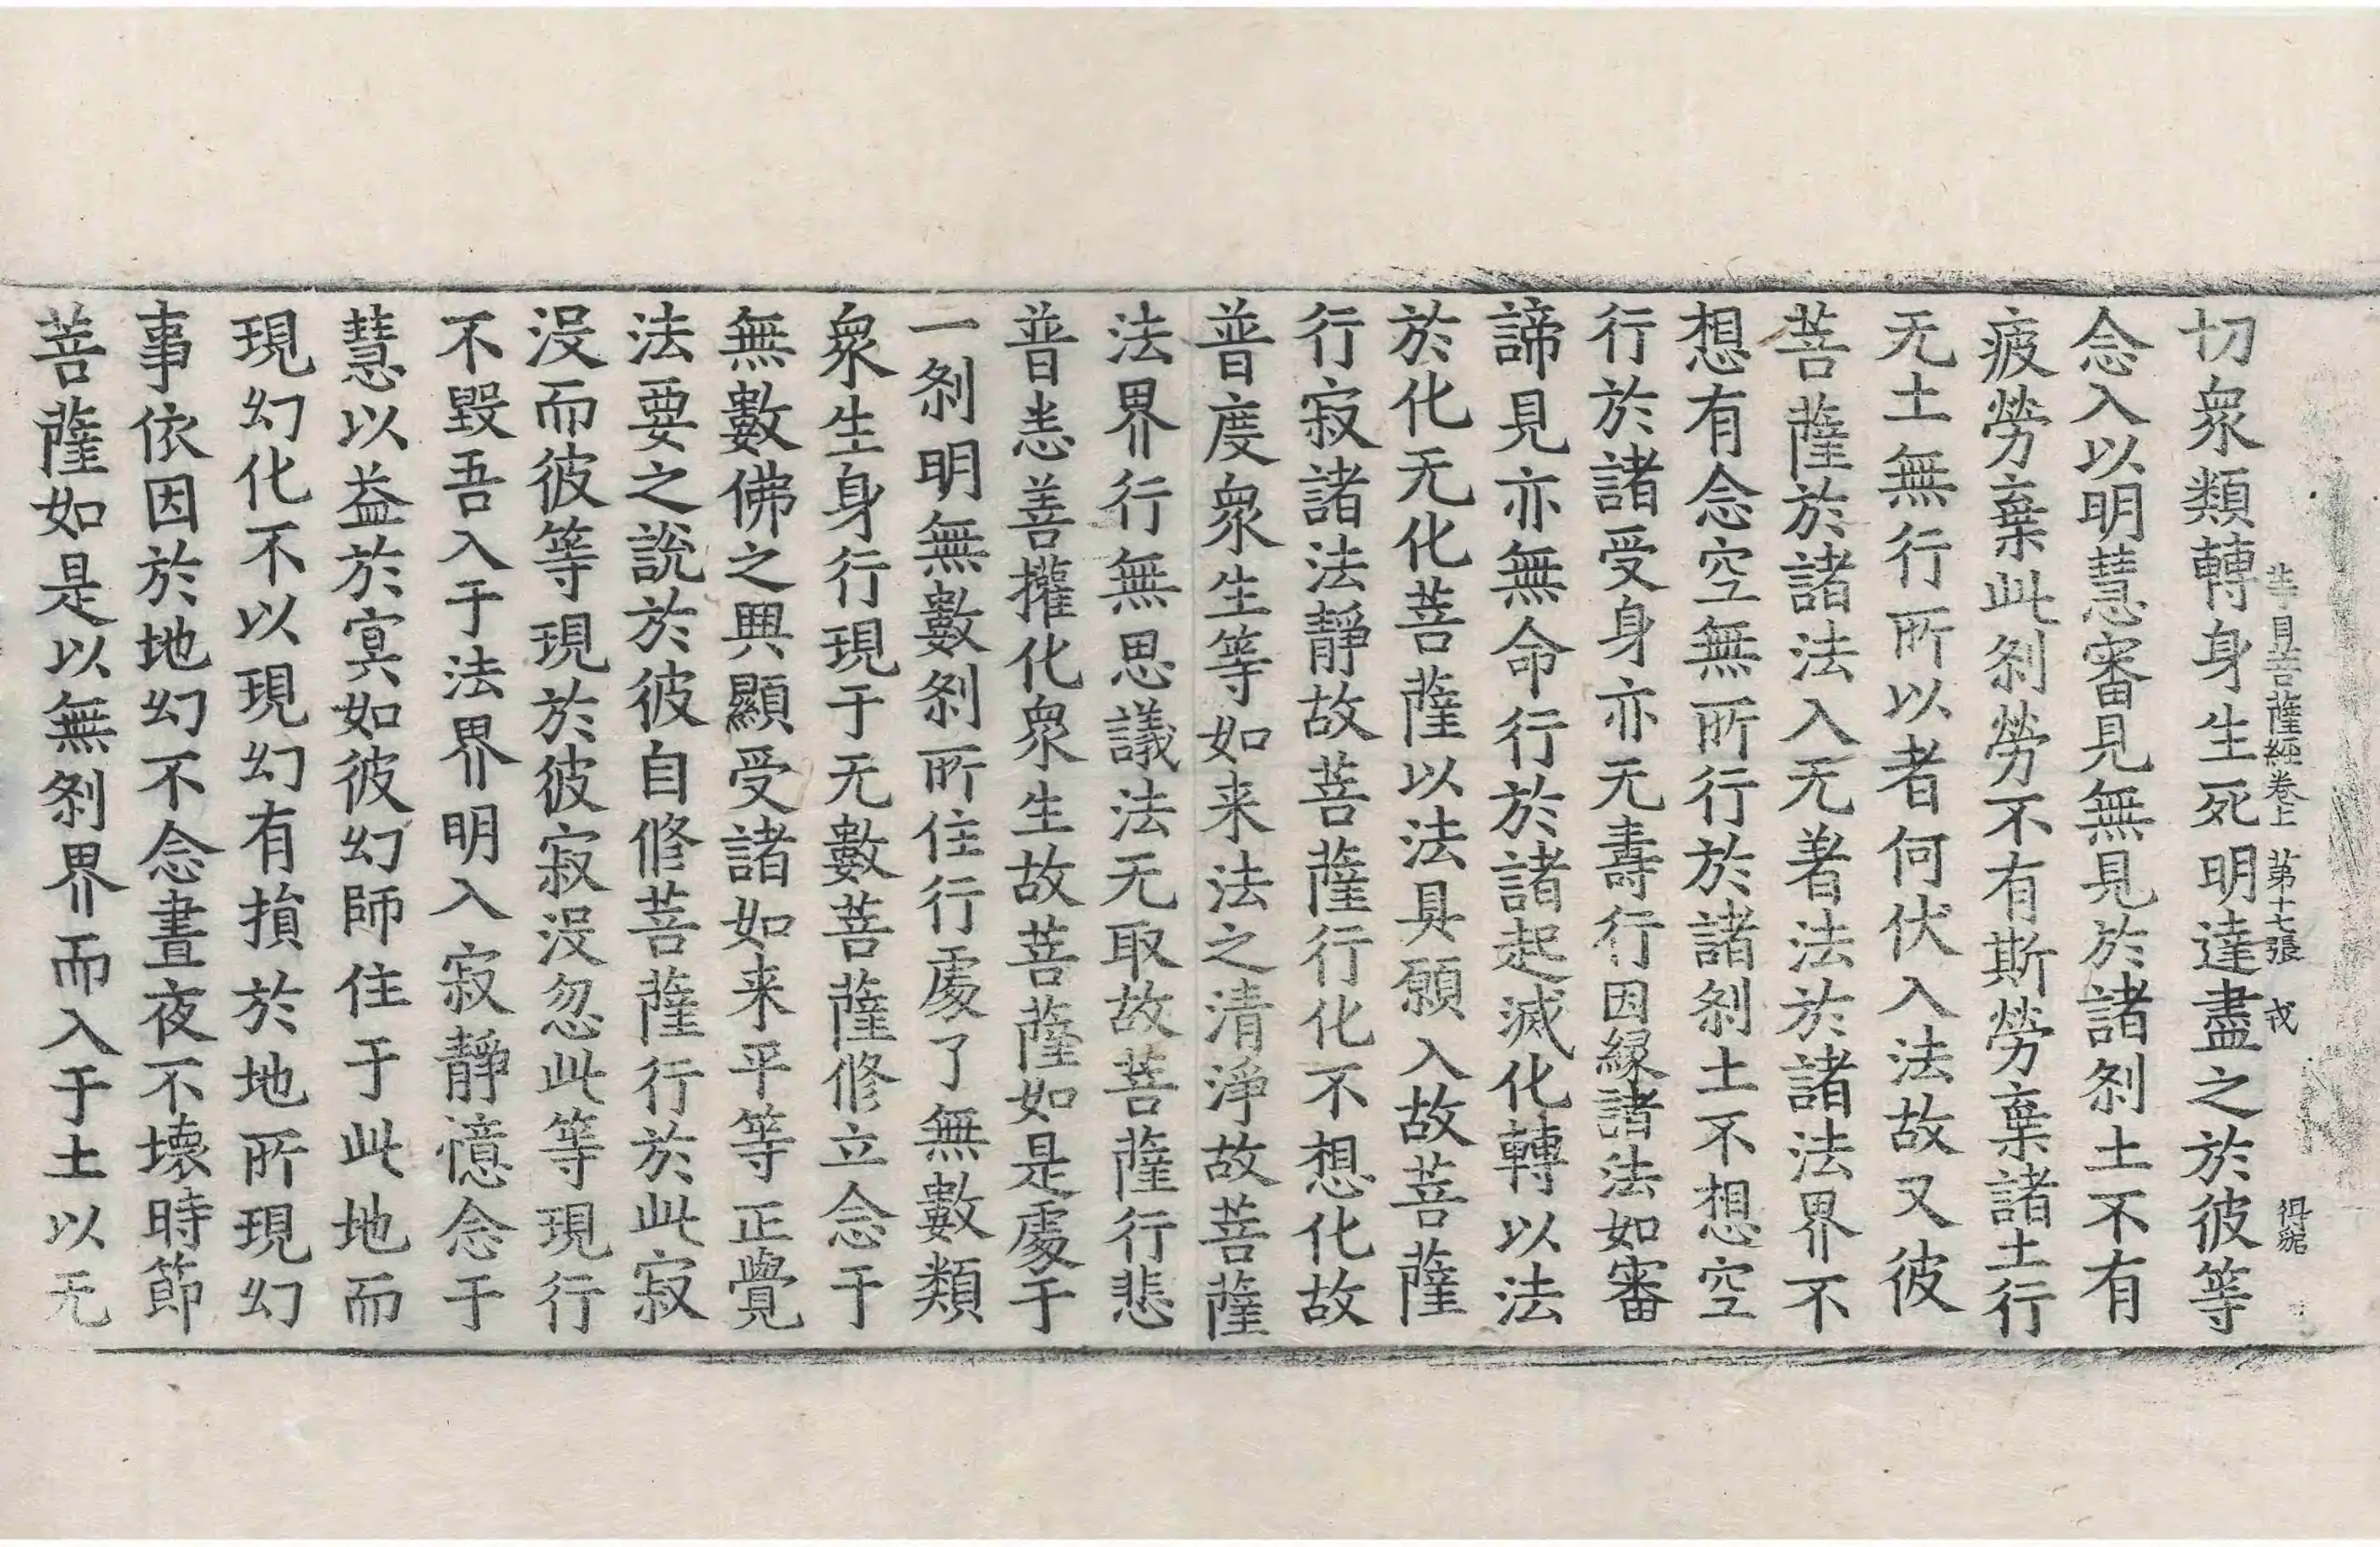 等目菩薩經卷上 苐十七張 戎 得䏻
切衆類轉身生死明達盡之於彼等
念入以明慧審見無見於諸刹土不有
疲勞棄此刹勞不有斯勞棄諸土行
无土無行所以者何伏入法故又彼
菩薩於諸法入无著法於諸法界不
想有念空無所行於諸刹土不想空
行於諸受身亦无壽行因緣諸法如審
諦見亦無命行於諸起滅化轉以法
於化无化菩薩以法具願入故菩薩
行寂諸法靜故菩薩行化不想化故
普度衆生等如来法之清淨故菩薩
法界行無思議法无取故菩薩行悲
普恙善攉化衆生故菩薩如是處于
一刹明無數刹所住行處了無數類
衆生身行現于无數菩薩修立念于
無數佛之興顯受諸如来平等正覺
法要之說於彼自修菩薩行於此寂
没而彼等現於彼寂没忽此等現行
不毀吾入于法界明入寂靜憶念于
慧以益於㝠如彼幻師住于此地而
現幻化不以現幻有損於地所現幻
事依因於地幻不念晝夜不壊時節
菩薩如是以無刹界而入于土以无